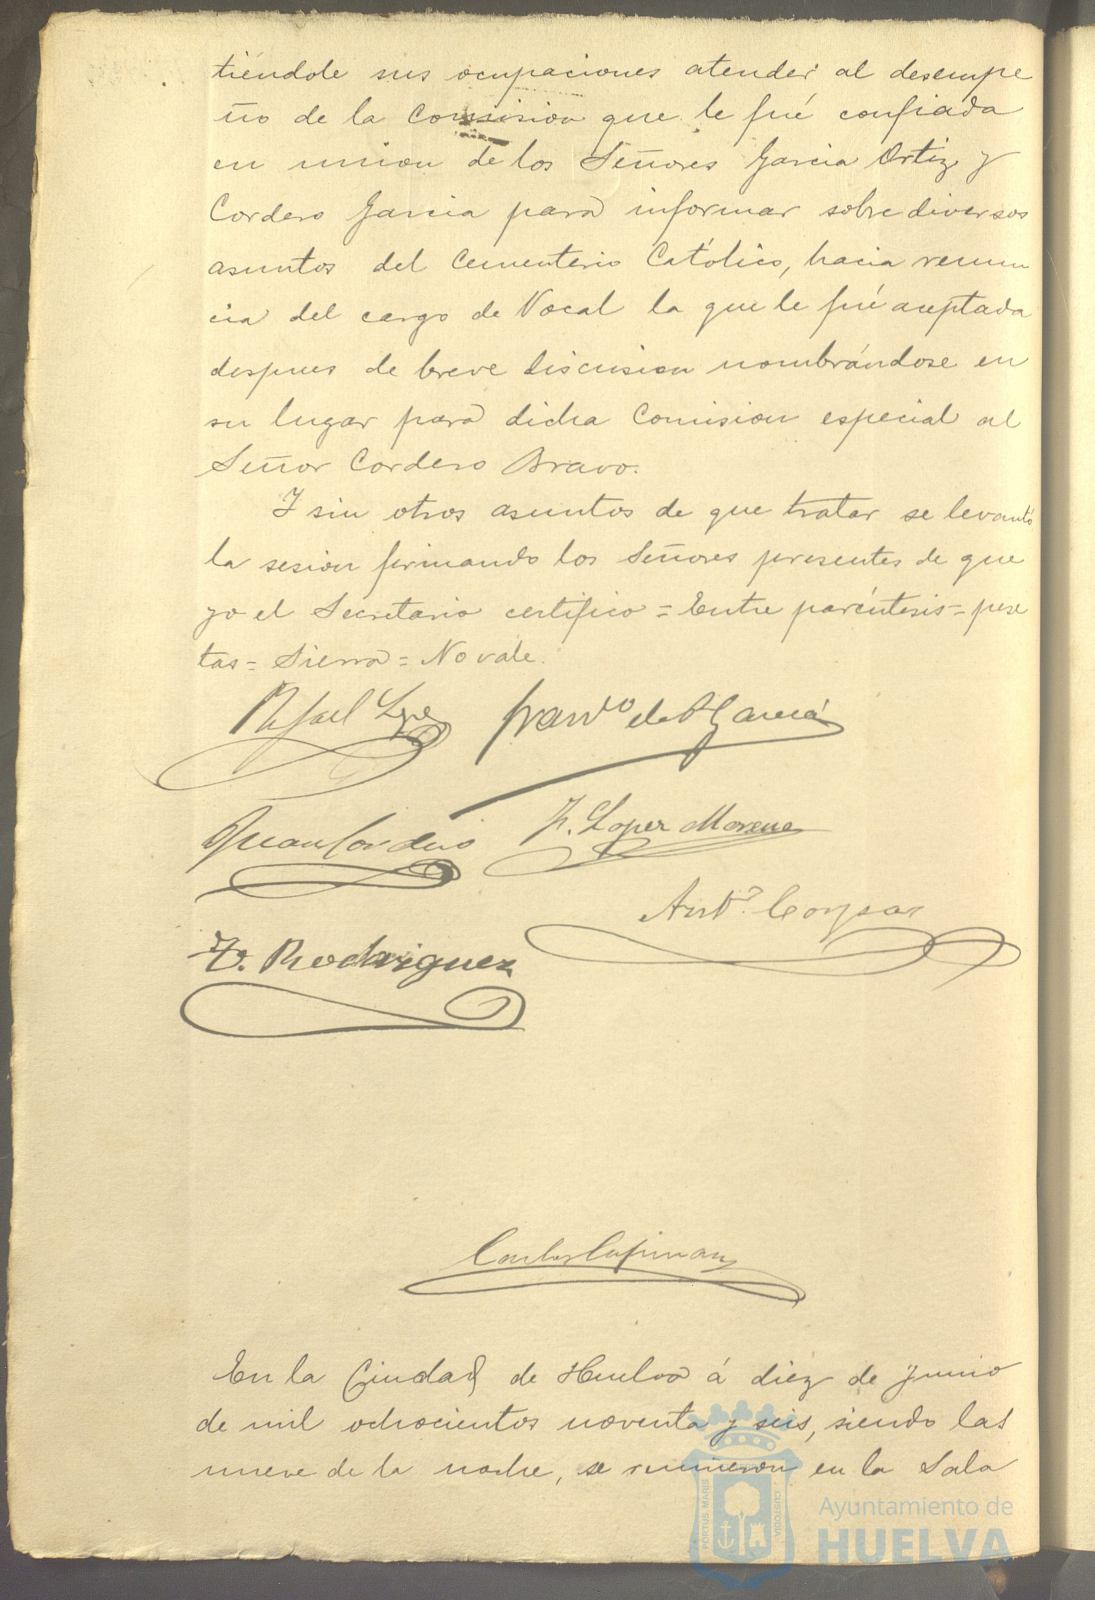 tiéndole sus ocupaciones atender al desempe
ño de la Comision que le fué confiada
en union de los Señores Garcia Ortiz y
Cordero Garcia para informar sobre diversos
asuntos del Cementerio Católico, hacia renun
cia del cargo de Vocal la que le fué aceptada
despues de breve discusion nombrándose en
su lugar para dicha Comision especial al
Señor Cordero Bravo.
Y sin otros asuntos de que tratar se levantó
la sesion firmando los Señores presentes de que
yo el Secretario certifico = Entre paréntesis = pese
tas = Sierra = No vale.
Rafael
de P. Garcia
Juan Cordero
F. Lopez Moreno
Antº
F. Rodriguez
En la Ciudad de Huelva á diez de Junio
de mil ochocientos noventa y seis, siendo las
nueve de la noche, se reunieron en la Sala
PORTUS MARIS
CUSTODIA
Ayuntamiento de
HUELVA